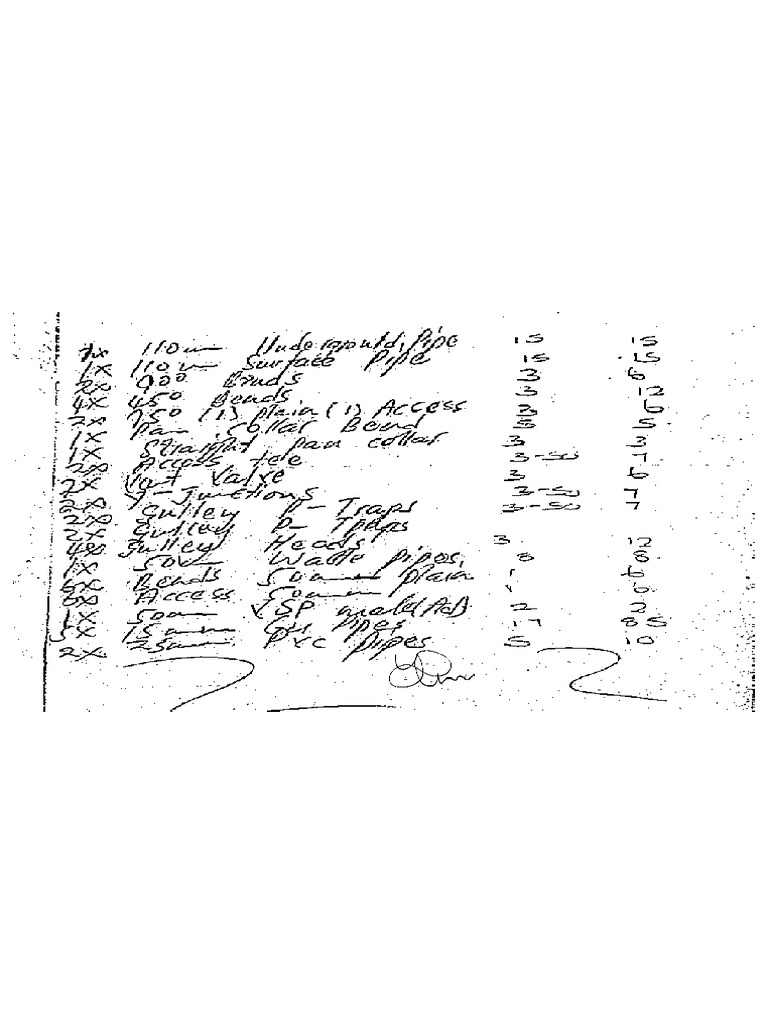 1x 110m Underground Pipe 15 15
1x 110m Surface Pipe 15 15
2x 90° Bends 3 6
4x 45° Bends 3 12
2x (1) Plain (1) Access 3 6
1x Pan Collar Bend 5 5
1x Straight pan collar 3 3
2x Access tee 3-50 7
2x Vent Valve 3 6
2x Y-Junctions 3-50 7
2x Gulley P-Traps 3-50 7
2x Gulley P-
4x Gulley Heads 3 12
1x 50m Waste pipes 8 8
6x Bends 50mm plain 6
6x Access 50mm 6
1x 50m VSP 2 2
5x 15mm Gus Pipes 17 85
2x 25mm PVC Pipes 5 10